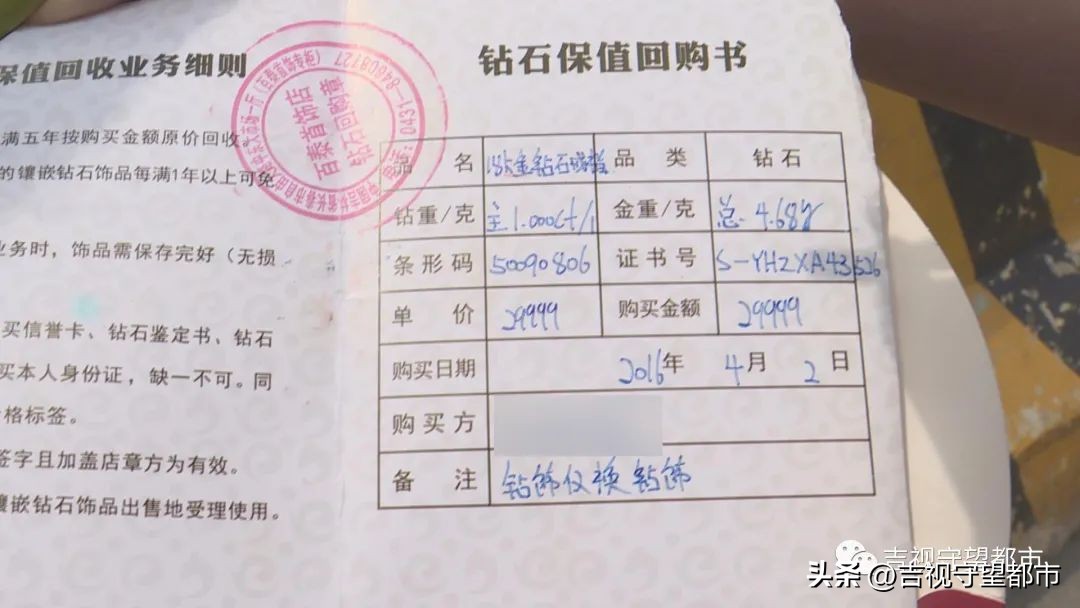 保值回收业务细则
满五年按购买金额原价回收。
的镶嵌钻石饰品每满1年以上可免
业务时，饰品需保存完好（无损
买信誉卡、钻石鉴定书、钻石
买本人身份证，缺一不可。同
格标签。
签字且加盖店章方为有效。
镶嵌钻石饰品出售地受理使用。
百泰首饰店
钻石回购章
电话：0431-84608727
钻石保值回购书
品 名 18k金钻石 品 类 钻石
钻重/克 主1.000ct/1 金重/克 总.4.68g
条形码 50090806 证书号 S-YHZXA43526
单 价 29999 购买金额 29999
购买日期 2016年 4月 2日
购买方
备 注 钻饰仅换钻饰
吉视守望都市
头条 @吉视守望都市